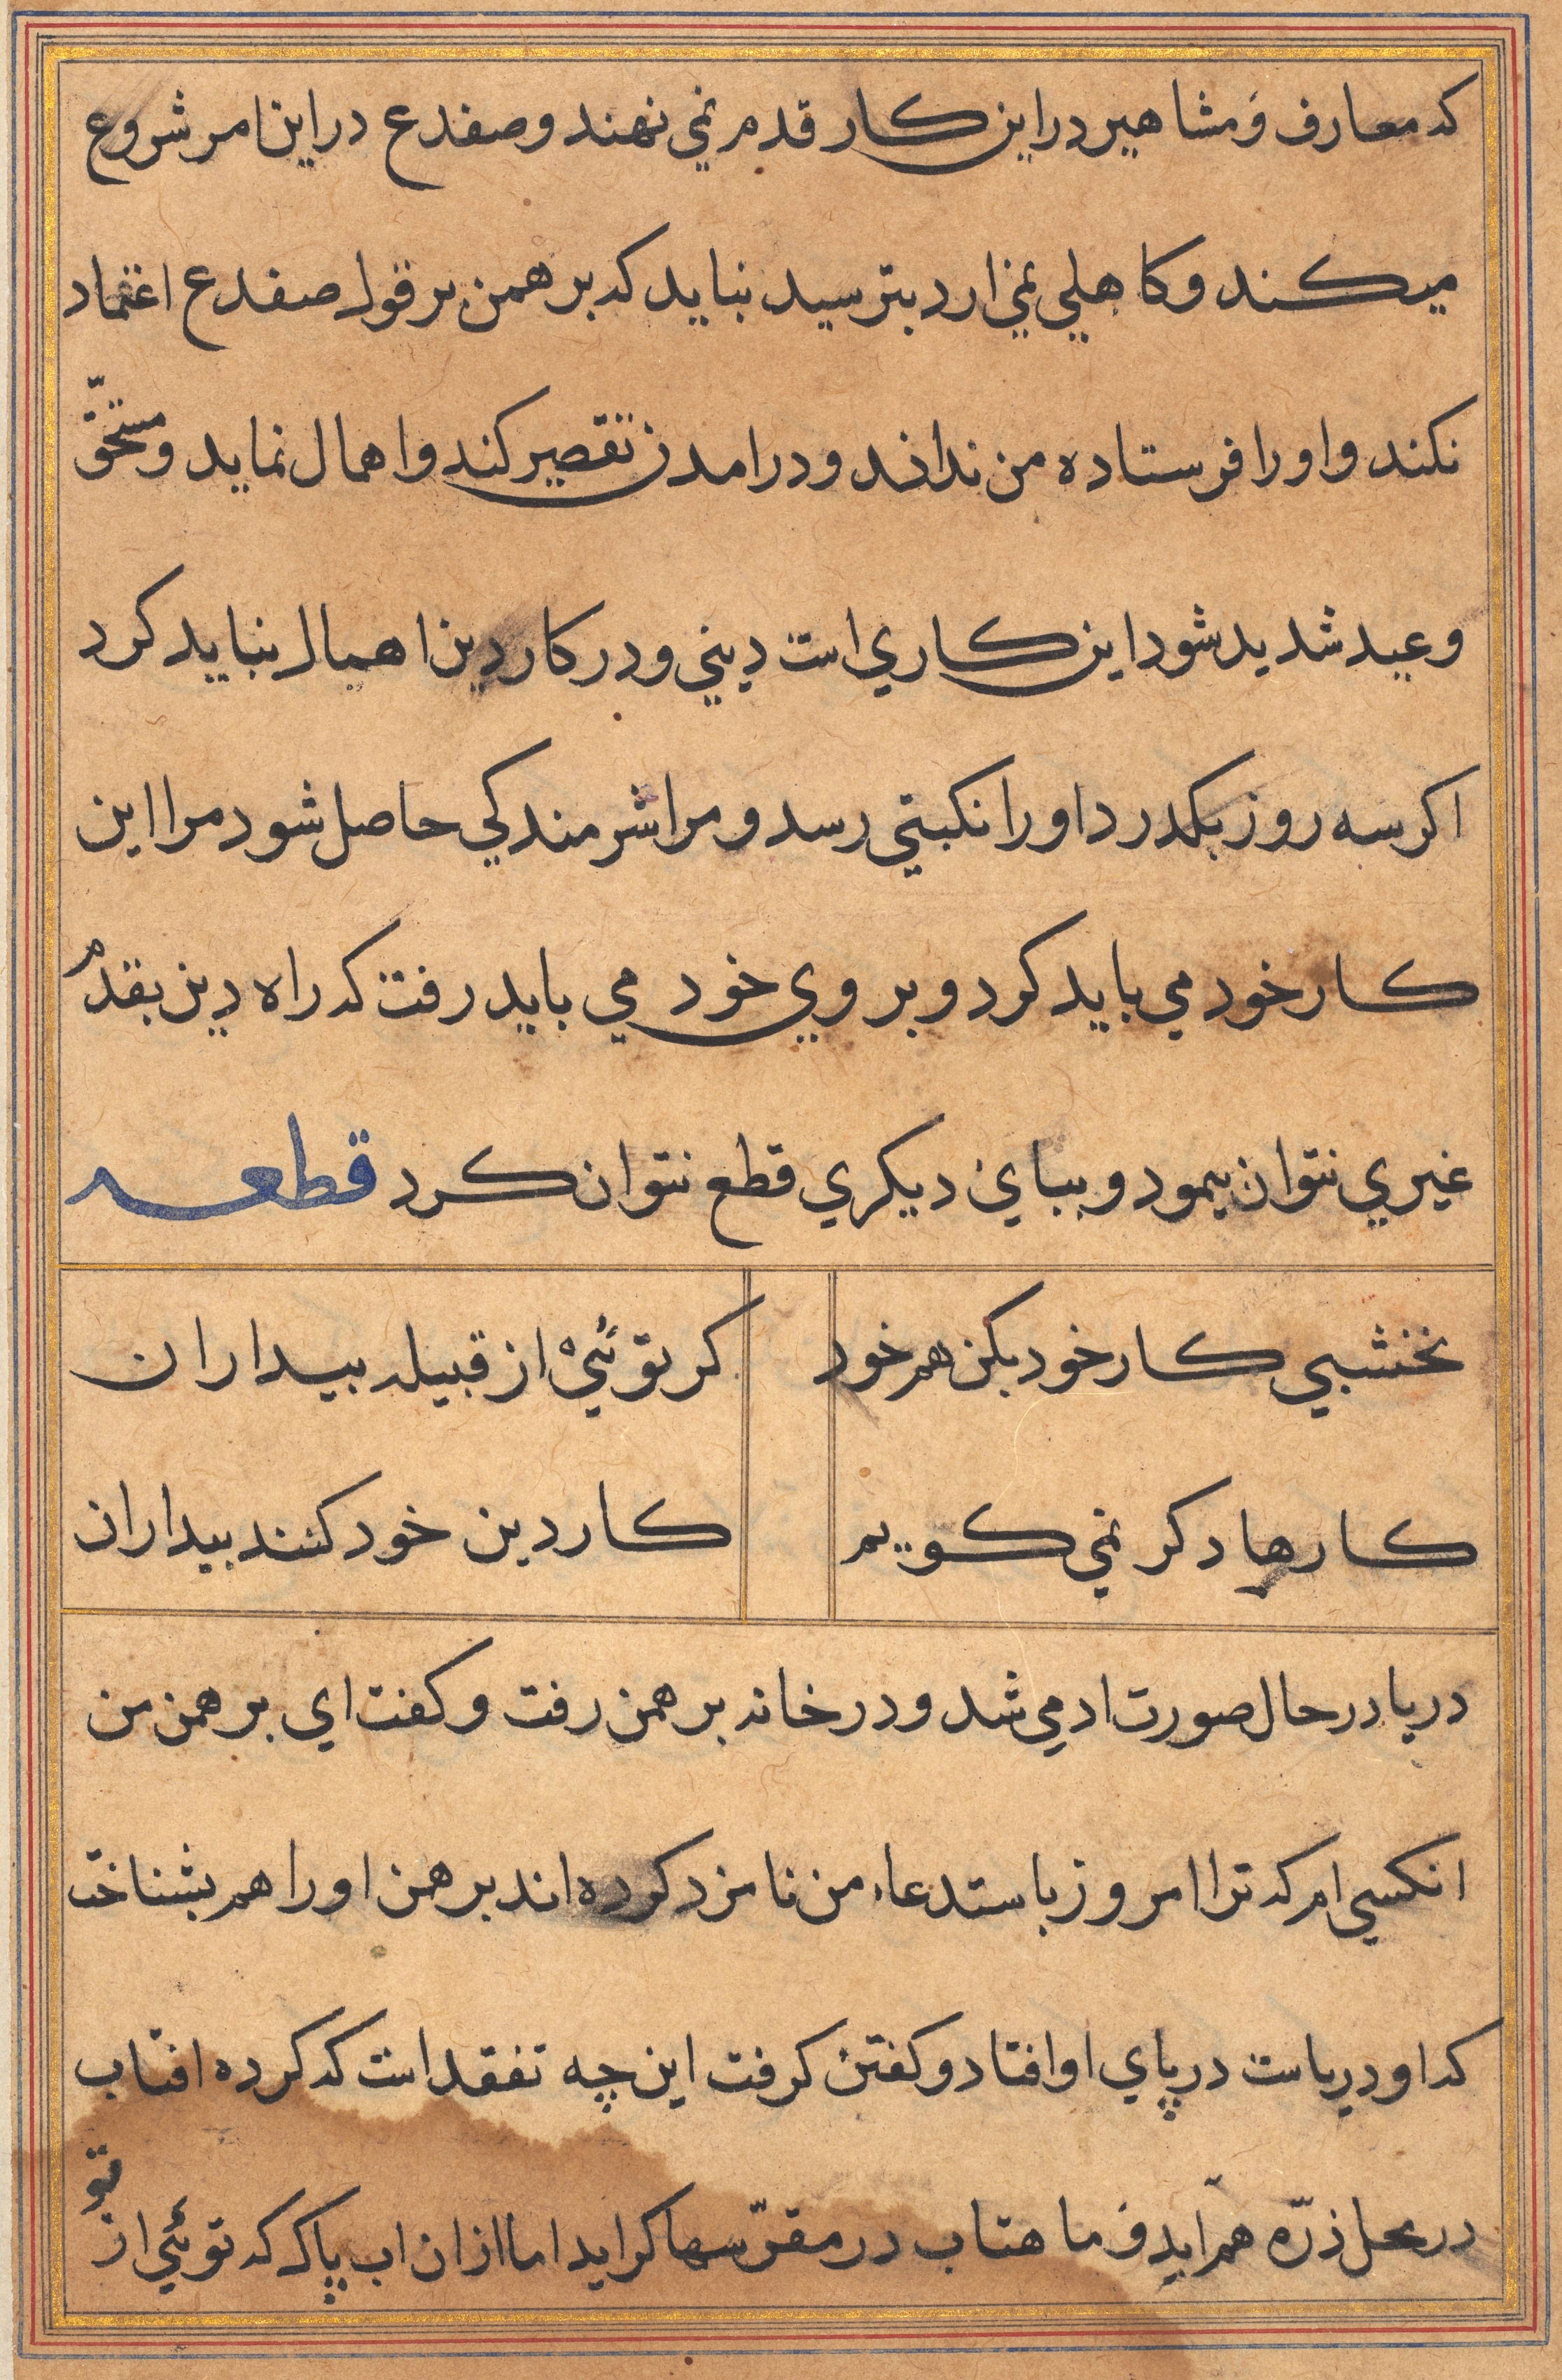 که معارف و مشاهیر در این کار قدم نمی نهند و صفدع در این امر شروع
میکند و کاهلی نمی ارد بترسید نباید که برهمن بر قول صفدع اعتماد
نکند و او را فرستاده من نداند و در امدن تقصیر کند و اهمال نماید و مستحقّ
وعید شدید شود این کاری است دینی و در کار دین اهمال نباید کرد
اکر سه روز بکدرد او را نکبتی رسد و مرا شرمندکی حاصل شود مرا این
کار خود می باید کرد و بروی خود می باید رفت که راه دین بقدم
غیری نتوان پیمود و ببای دیکری قطع نتوان کرد قطعه
نخشبی کار خود بکن هم خود کر توئی از قبیله بیداران
کارها دکر نمی کویم کار دین خود کنند بیداران
دریا در حال صورت ادمی شد و در خانه برهمن رفت و کفت ای برهمن من
انکسی ام که ترا امروز باستدعاء من نامزد کرده اند برهمن او را هم بشناخت
که او دریاست در پای او افتاد و کفتن کرفت این چه تفقد است که کرده افتاب
در محل ذرّه هم اید و ماهتاب در مقرّ سها کراید اما ازان اب پاک که توئی از تو